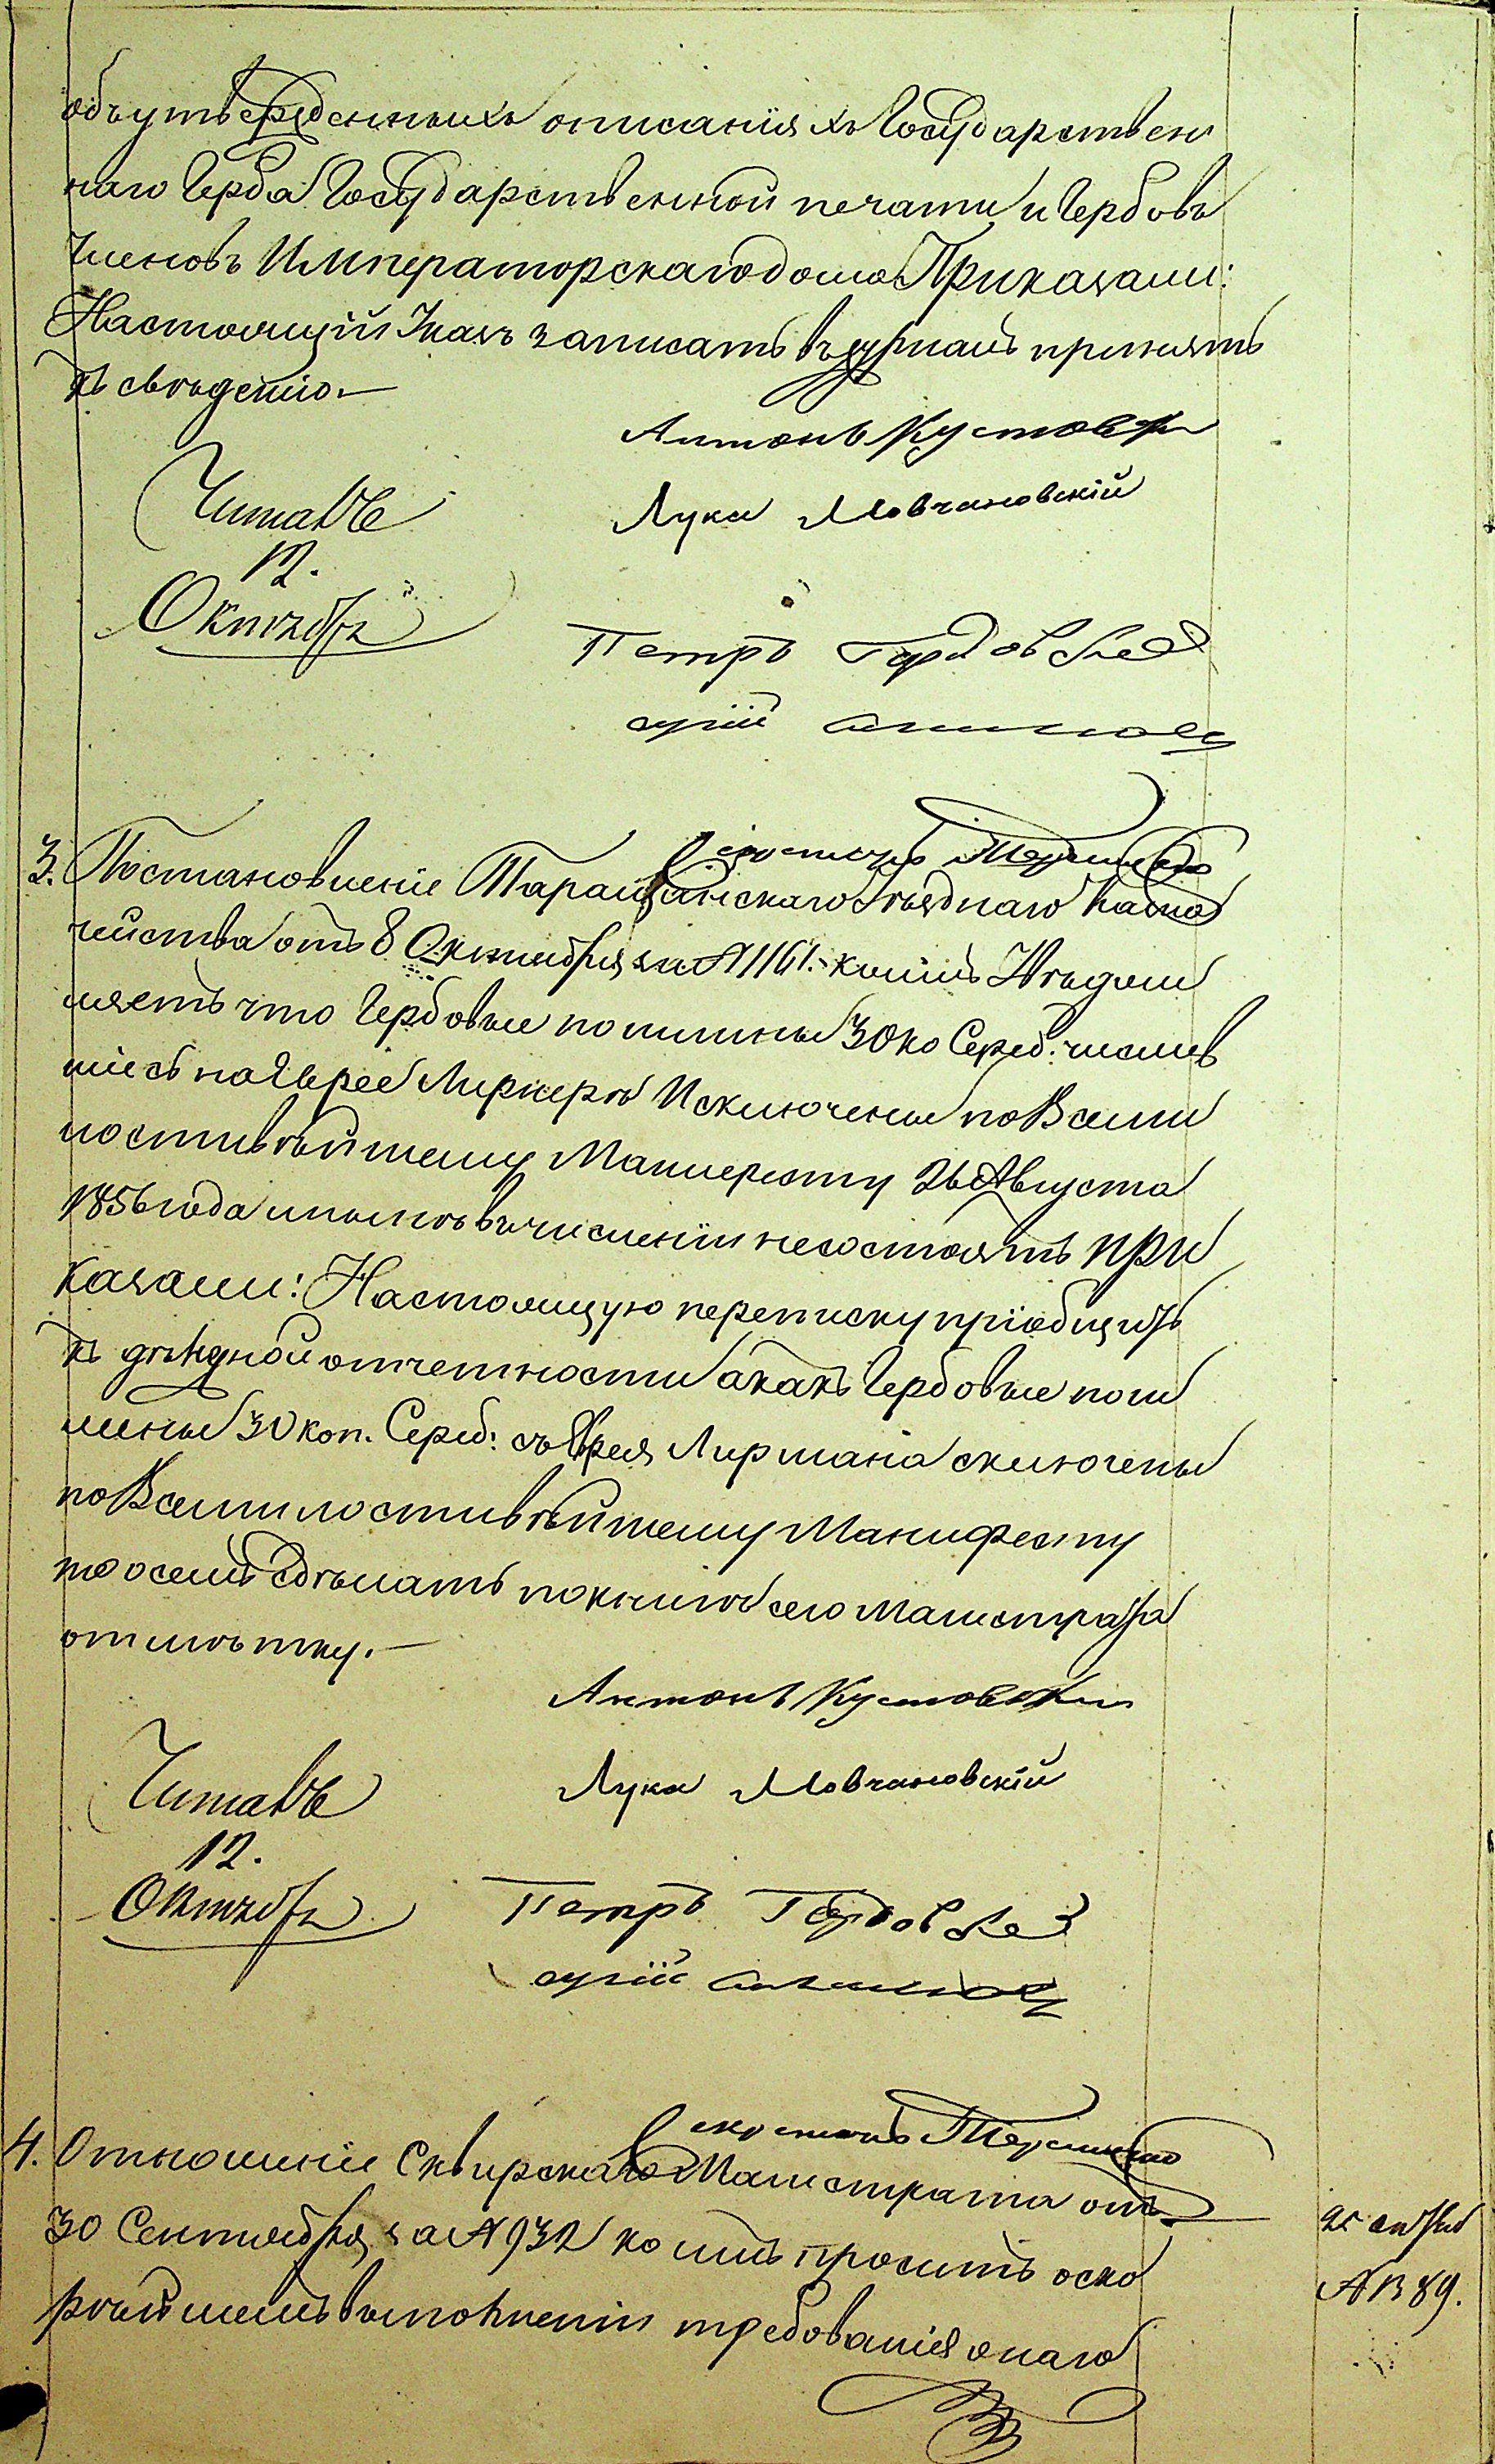 объ утвержденныхъ описаніяхъ Государствен
наго Герба Государственной печати и Гербовъ
Членовъ Императорскаго дома Приказали:
Настоящій Указъ записать въ журналъ принять
къ сведенію.—
Антонъ Кустовскій
Читалъ
Лука Мовчановскій
12.
Октября
Петръ
3. Постановленіе Таращанскаго Уезднаго Казна
чейства отъ 8 Октября за № 1161.- коимъ Уведом
ляетъ что Гербовые пошлины 30 ко Сереб: числив
шіесь на Еврее Лирмере Исключены по Всеми
лостивейшему Манифесту 26 Августа
1856 года и ныне въ численіи несостоятъ При
казали: Настоящую переписку пріобщить
къ денежной отчетности а какъ Гербовые пош
лины 30 коп. Сереб: съ Еврея Лирмана сключены
по Всемилостивейшему Манифесту
то о семъ Сделать по книге сего Магистрата
отметку.—
Антонъ Кустовскій
Читалъ
Лука Мовчановскій
12.
Октября
Петръ
4. Отношеніе Сквирскаго Магистрата отъ
30 Сентября за № 932 коимъ проситъ оско
рейшемъ выполненіи требованія онаго
25 октяб
№ 1389.